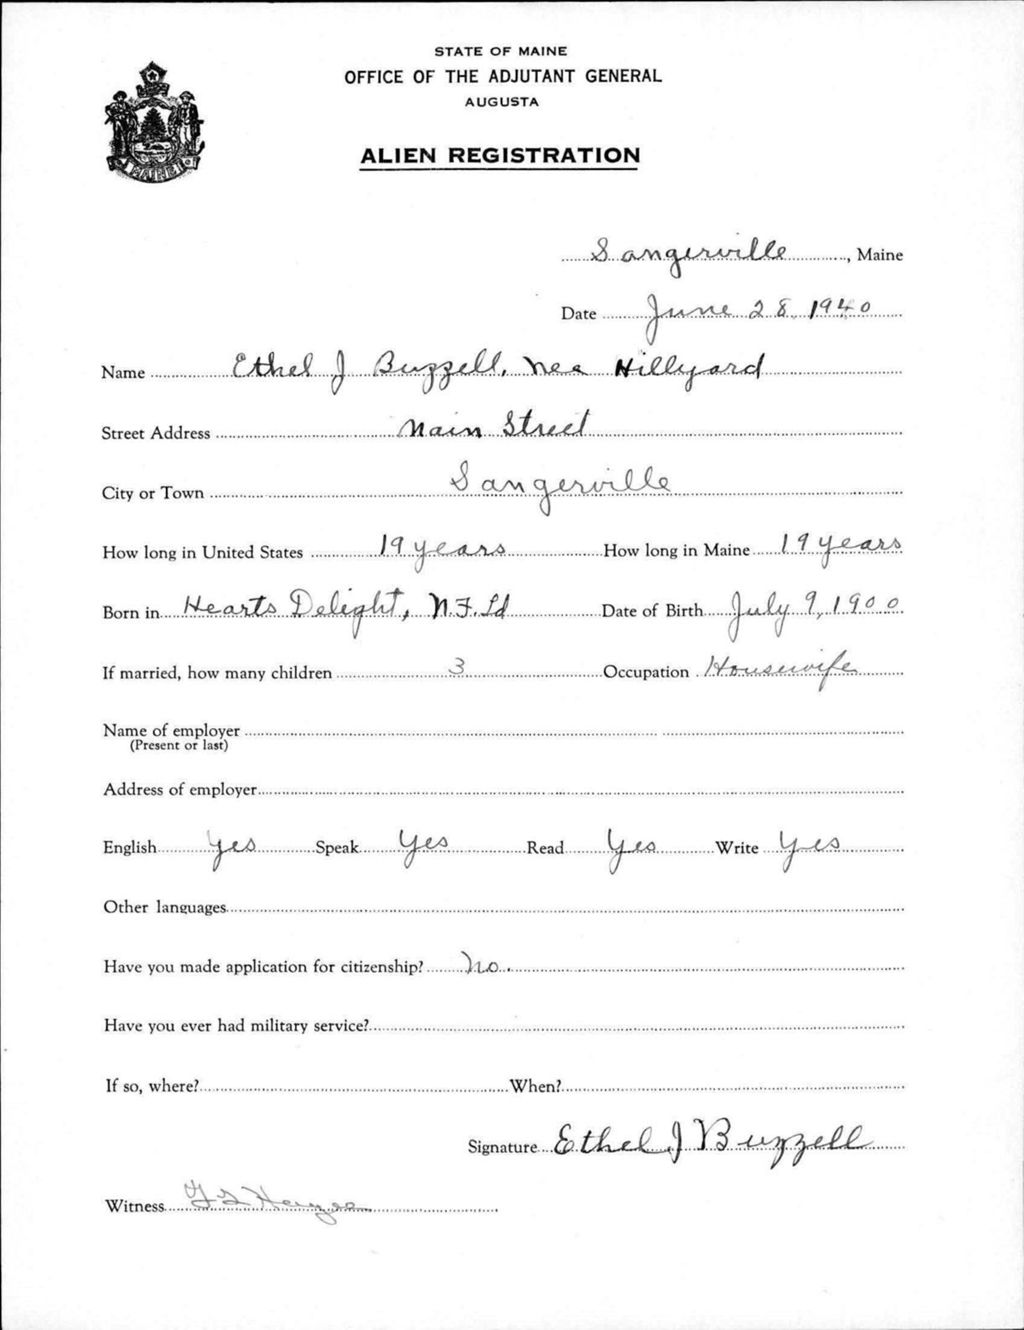 STATE OF MAINE
OFFICE OF THE ADJUTANT GENERAL
AUGUSTA
ALIEN REGISTRATION
MAINE
Sangerville, Maine
Date June 28, 1940
Name Ethel J Buzzell, nee Hillyard
Street Address Main Street
City or Town Sangerville
How long in United States 19 years How long in Maine 19 years
Born in Hearts Delight, N.F.Ld Date of Birth July 9, 1900
If married, how many children 3 Occupation Housewife
Name of employer
(Present or last)
Address of employer
English Yes Speak Yes Read Yes Write Yes
Other languages
Have you made application for citizenship? No.
Have you ever had military service?
If so, where? When?
Signature Ethel J Buzzell
Witness